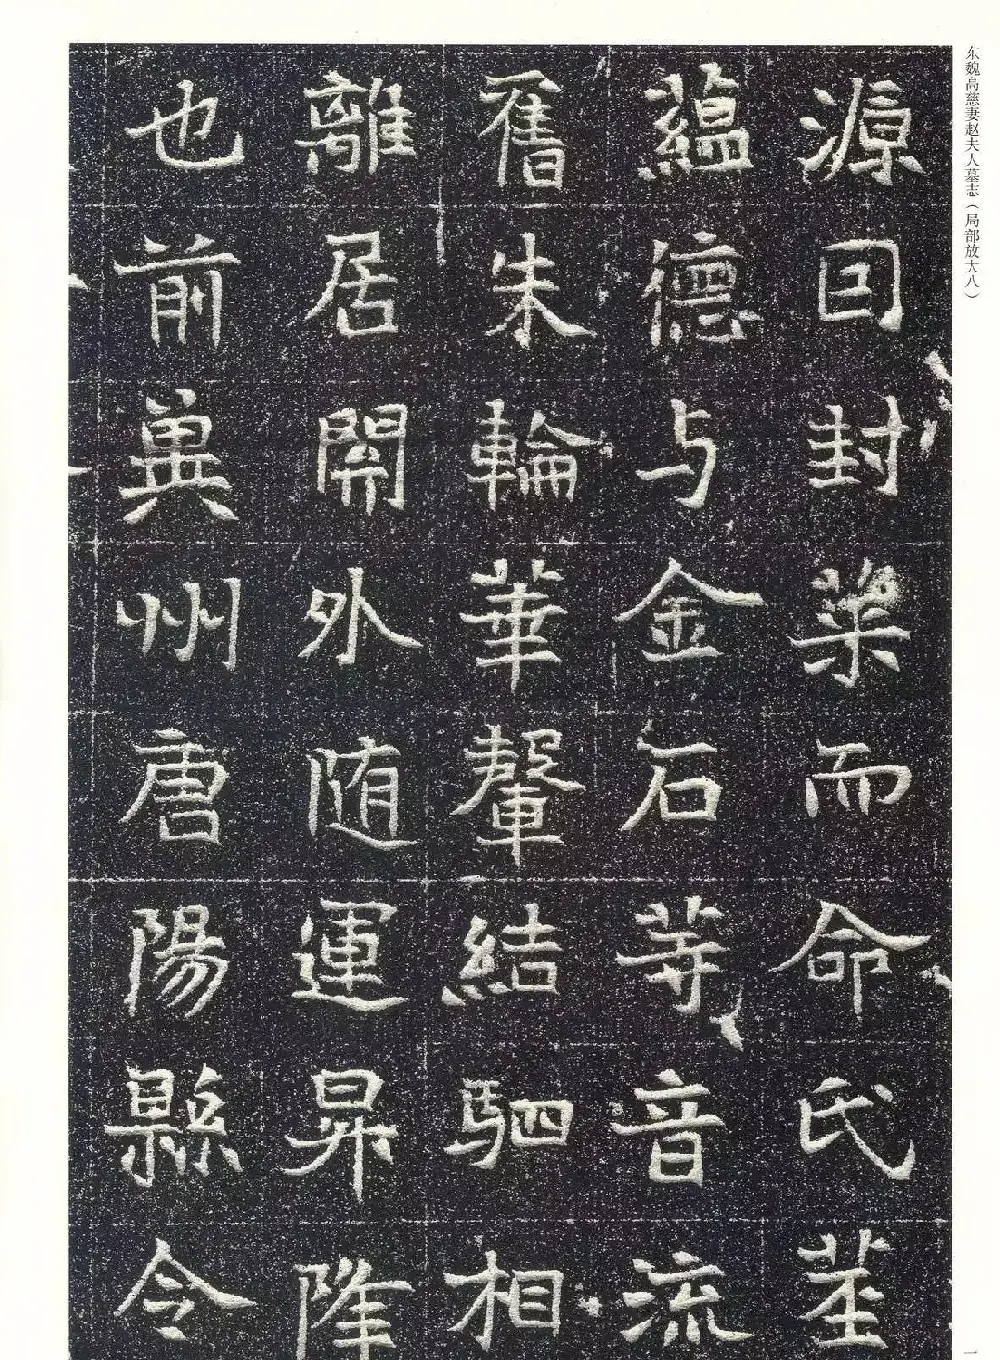 东魏高慈妻赵夫人墓志（局部放大八）
源囙封而命氏
蘊德与金石等音流
舊朱輪華轂結駟相
離居開外随運昇隆
也前冀州唐陽縣令
一